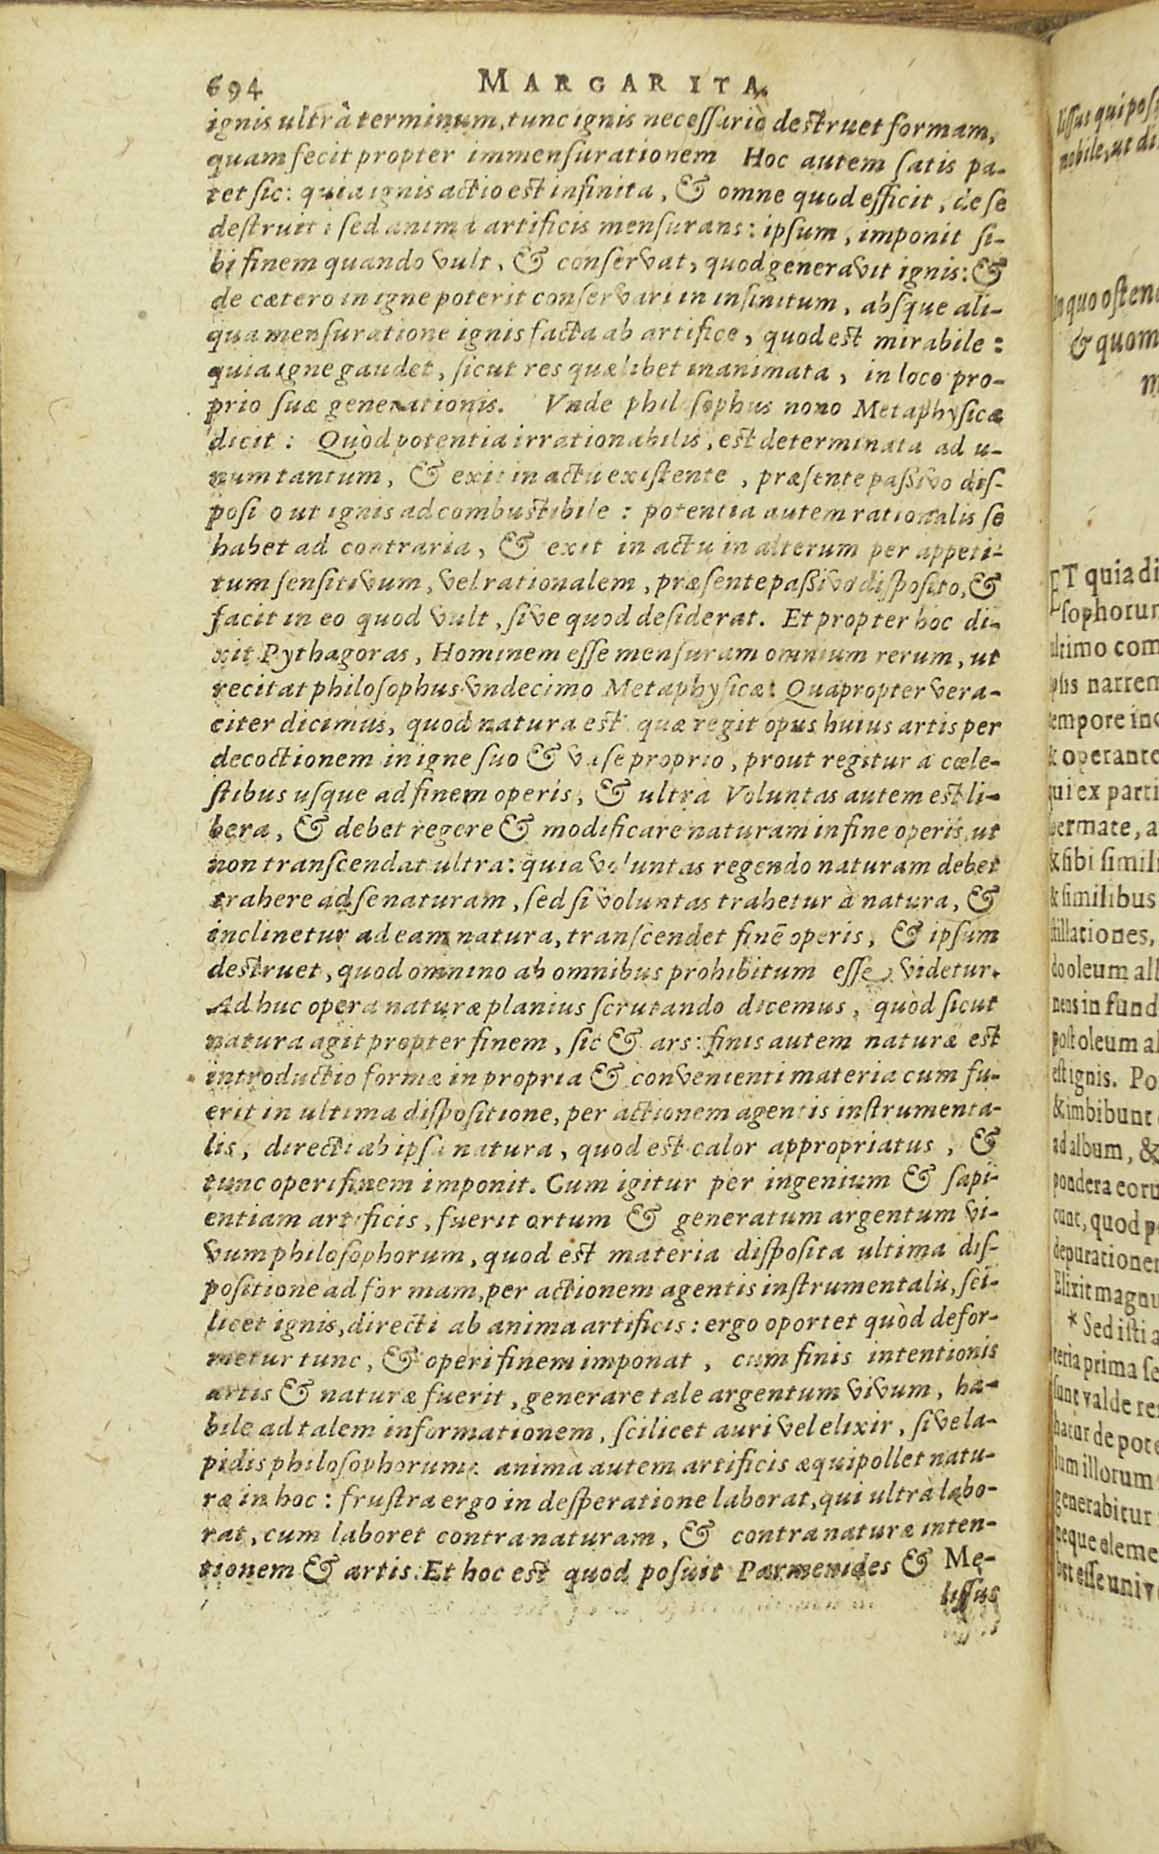 694 MARGARITA.
ignis ultrà terminum, tunc ignis necessariò destruet formam,
quam fecit propter immensurationem Hoc autem satis pa-
tet sic: quia ignis actio est infinita, & omne quod efficit, de se
destruit: sed anima artificis mensurans: ipsum, imponit si-
bi finem quando vult, & conservat, quod generavit ignis: &
de cætero in igne poterit conservari in infinitum, absque ali-
qua mensuratione ignis facta ab artifice, quod est mirabile:
quia igne gaudet, sicut res quælibet inanimata, in loco pro-
prio suæ generationis. Vnde philosophus nono Metaphysicæ
dicit: Quòd potentia irrationabilis, est determinata ad u-
num tantum, & exit in actu existente, præsente passivo dis-
posi o ut ignis ad combustibile: potentia autem rationalis se
habet ad contraria, & exit in actu in alterum per appeti-
tum sensitivum, vel rationalem, præsente passivo disposito, &
facit in eo quod vult, sive quod desiderat. Et propter hoc di-
xit Pythagoras, Hominem esse mensuram omnium rerum, ut
recitat philosophus vndecimo Metaphysicæ: Quapropter vera-
citer dicimus, quod natura est quæ regit opus huius artis per
decoctionem in igne suo & vase proprio, prout regitur à cœle-
stibus usque ad finem operis, & ultrà Voluntas autem est li-
bera, & debet regere & modificare naturam in fine operis, ut
non transcendat ultra: quia voluntas regendo naturam debet
trahere ad se naturam, sed si voluntas trahetur à natura, &
inclinetur ad eam natura, transcendet finē operis, & ipsum
destruet, quod omnino ab omnibus prohibitum esse videtur.
Adhuc opera naturæ planius scrutando dicemus, quòd sicut
natura agit propter finem, sic & ars: finis autem naturæ est
introductio formæ in propria & convenienti materia cum fu-
erit in ultima dispositione, per actionem agentis instrumenta-
lis, directi ab ipsa natura, quod est calor appropriatus, &
tunc operi finem imponit. Cum igitur per ingenium & sapi-
entiam artificis, fuerit ortum & generatum argentum vi-
vum philosophorum, quod est materia disposita ultima dis-
positione ad formam, per actionem agentis instrumentalis, sci-
licet ignis, directi ab anima artificis: ergo oportet quòd defor-
metur tunc, & operi finem imponat, cum finis intentionis
artis & naturæ fuerit, generare tale argentum vivum, ha-
bile ad talem informationem, scilicet auri vel elixir, sive la-
pidis philosophorum: anima autem artificis æquipollet natu-
ræ in hoc: frustra ergo in desperatione laborat, qui ultrà labo-
rat, cum laboret contra naturam, & contra naturæ inten-
tionem & artis. Et hoc est quod posuit Parmenides & Me-
lissus
lissus qui posi
mobile, ut di
In quo osten
& quom
ET quia di
sophorum
ultimo com
psis narren
tempore inc
& operante
qui ex parti
permate, a
& sibi simil
& similibus
stillationes,
do oleum all
nens in fund
post oleum al
est ignis. Po
& imbibunt
ad album, &
pondera eoru
cunt, quod p
depurationem
Elixit magnu
* Sed isti a
teria prima se
sunt valde re
hatur de pote
lum illorum
generabitur
neque eleme
est esse univ